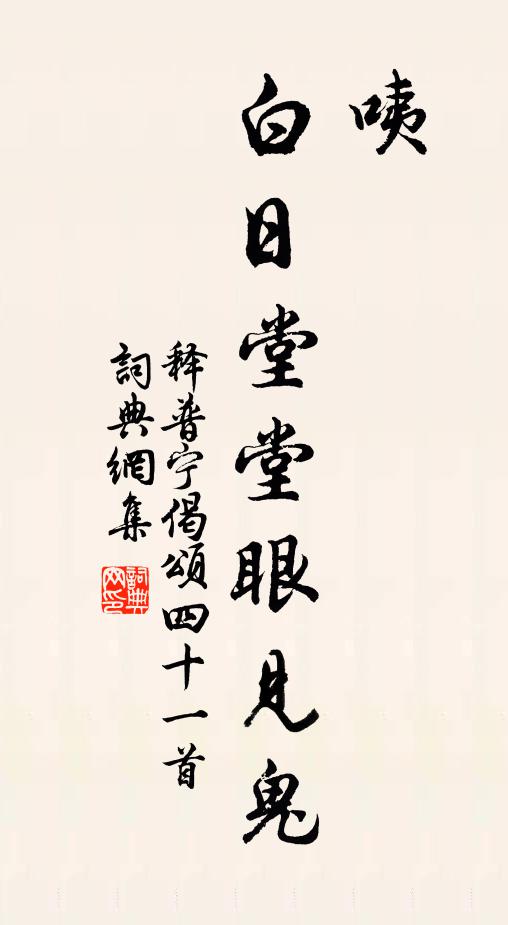 咦
白日堂堂眼見鬼
释普宁偈頌四十一首
詞典網集
詞典網印